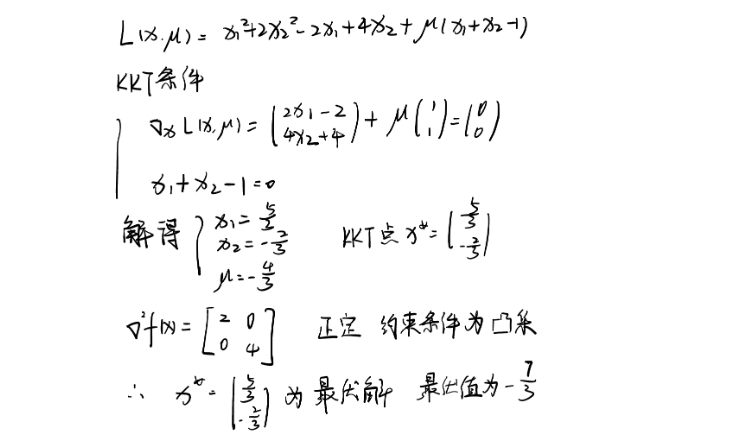 L(x,μ) = x₁²+2x₂²-2x₁+4x₂+μ(x₁+x₂-1)
KKT条件
∇ₓL(x,μ) = (2x₁-2 4x₂+4) + μ(1 1) = (0 0)
x₁+x₂-1=0
解得 { x₁= 5/3 x₂= -2/3 μ= -4/3 KKT点 x* = (5/3 -2/3)
∇²f(x) = [2 0 0 4] 正定 约束条件为凸集
∴ x* = (5/3 -2/3) 为最优解 最优值为 -7/3